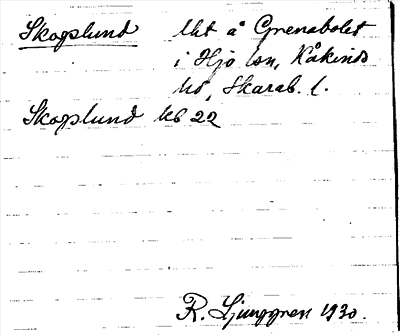 Skogslund Ukt å Grenabolet
i Hjo lsn, Kåkinds
hd, Skarab. l.
Skogslund kb 22
R. Ljunggren 1930.